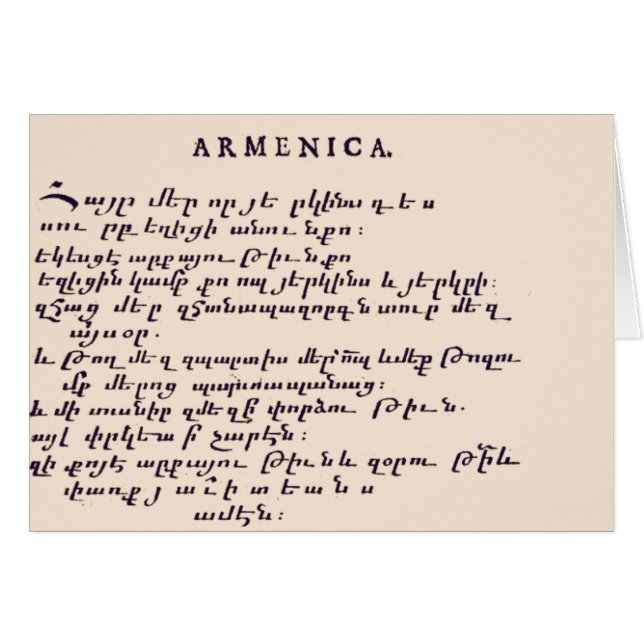 ARMENICA.
Հայր մեր որ յե րկինս դ ես
սու րբ եղիցի անու նքո։
եկեսցէ արքայու թիւնքո
եղիցին կամք քո որպ յերկինս և յերկրի։
զհաց մեր զհանապազորդ ն տուր մեզ
այսօր.
և թող մեզ զպարտիս մեր որպ և մեք թողու
մք մերոց պարտապանաց։
և մի տանիր զմեզ ի փորձու թիւն.
այլ փրկեա ի չարէն։
զի քոյէ արքայու թիւն և զօրու թի և
փառք յ ա ւ ի տ ե ա ն ս
ամէն։